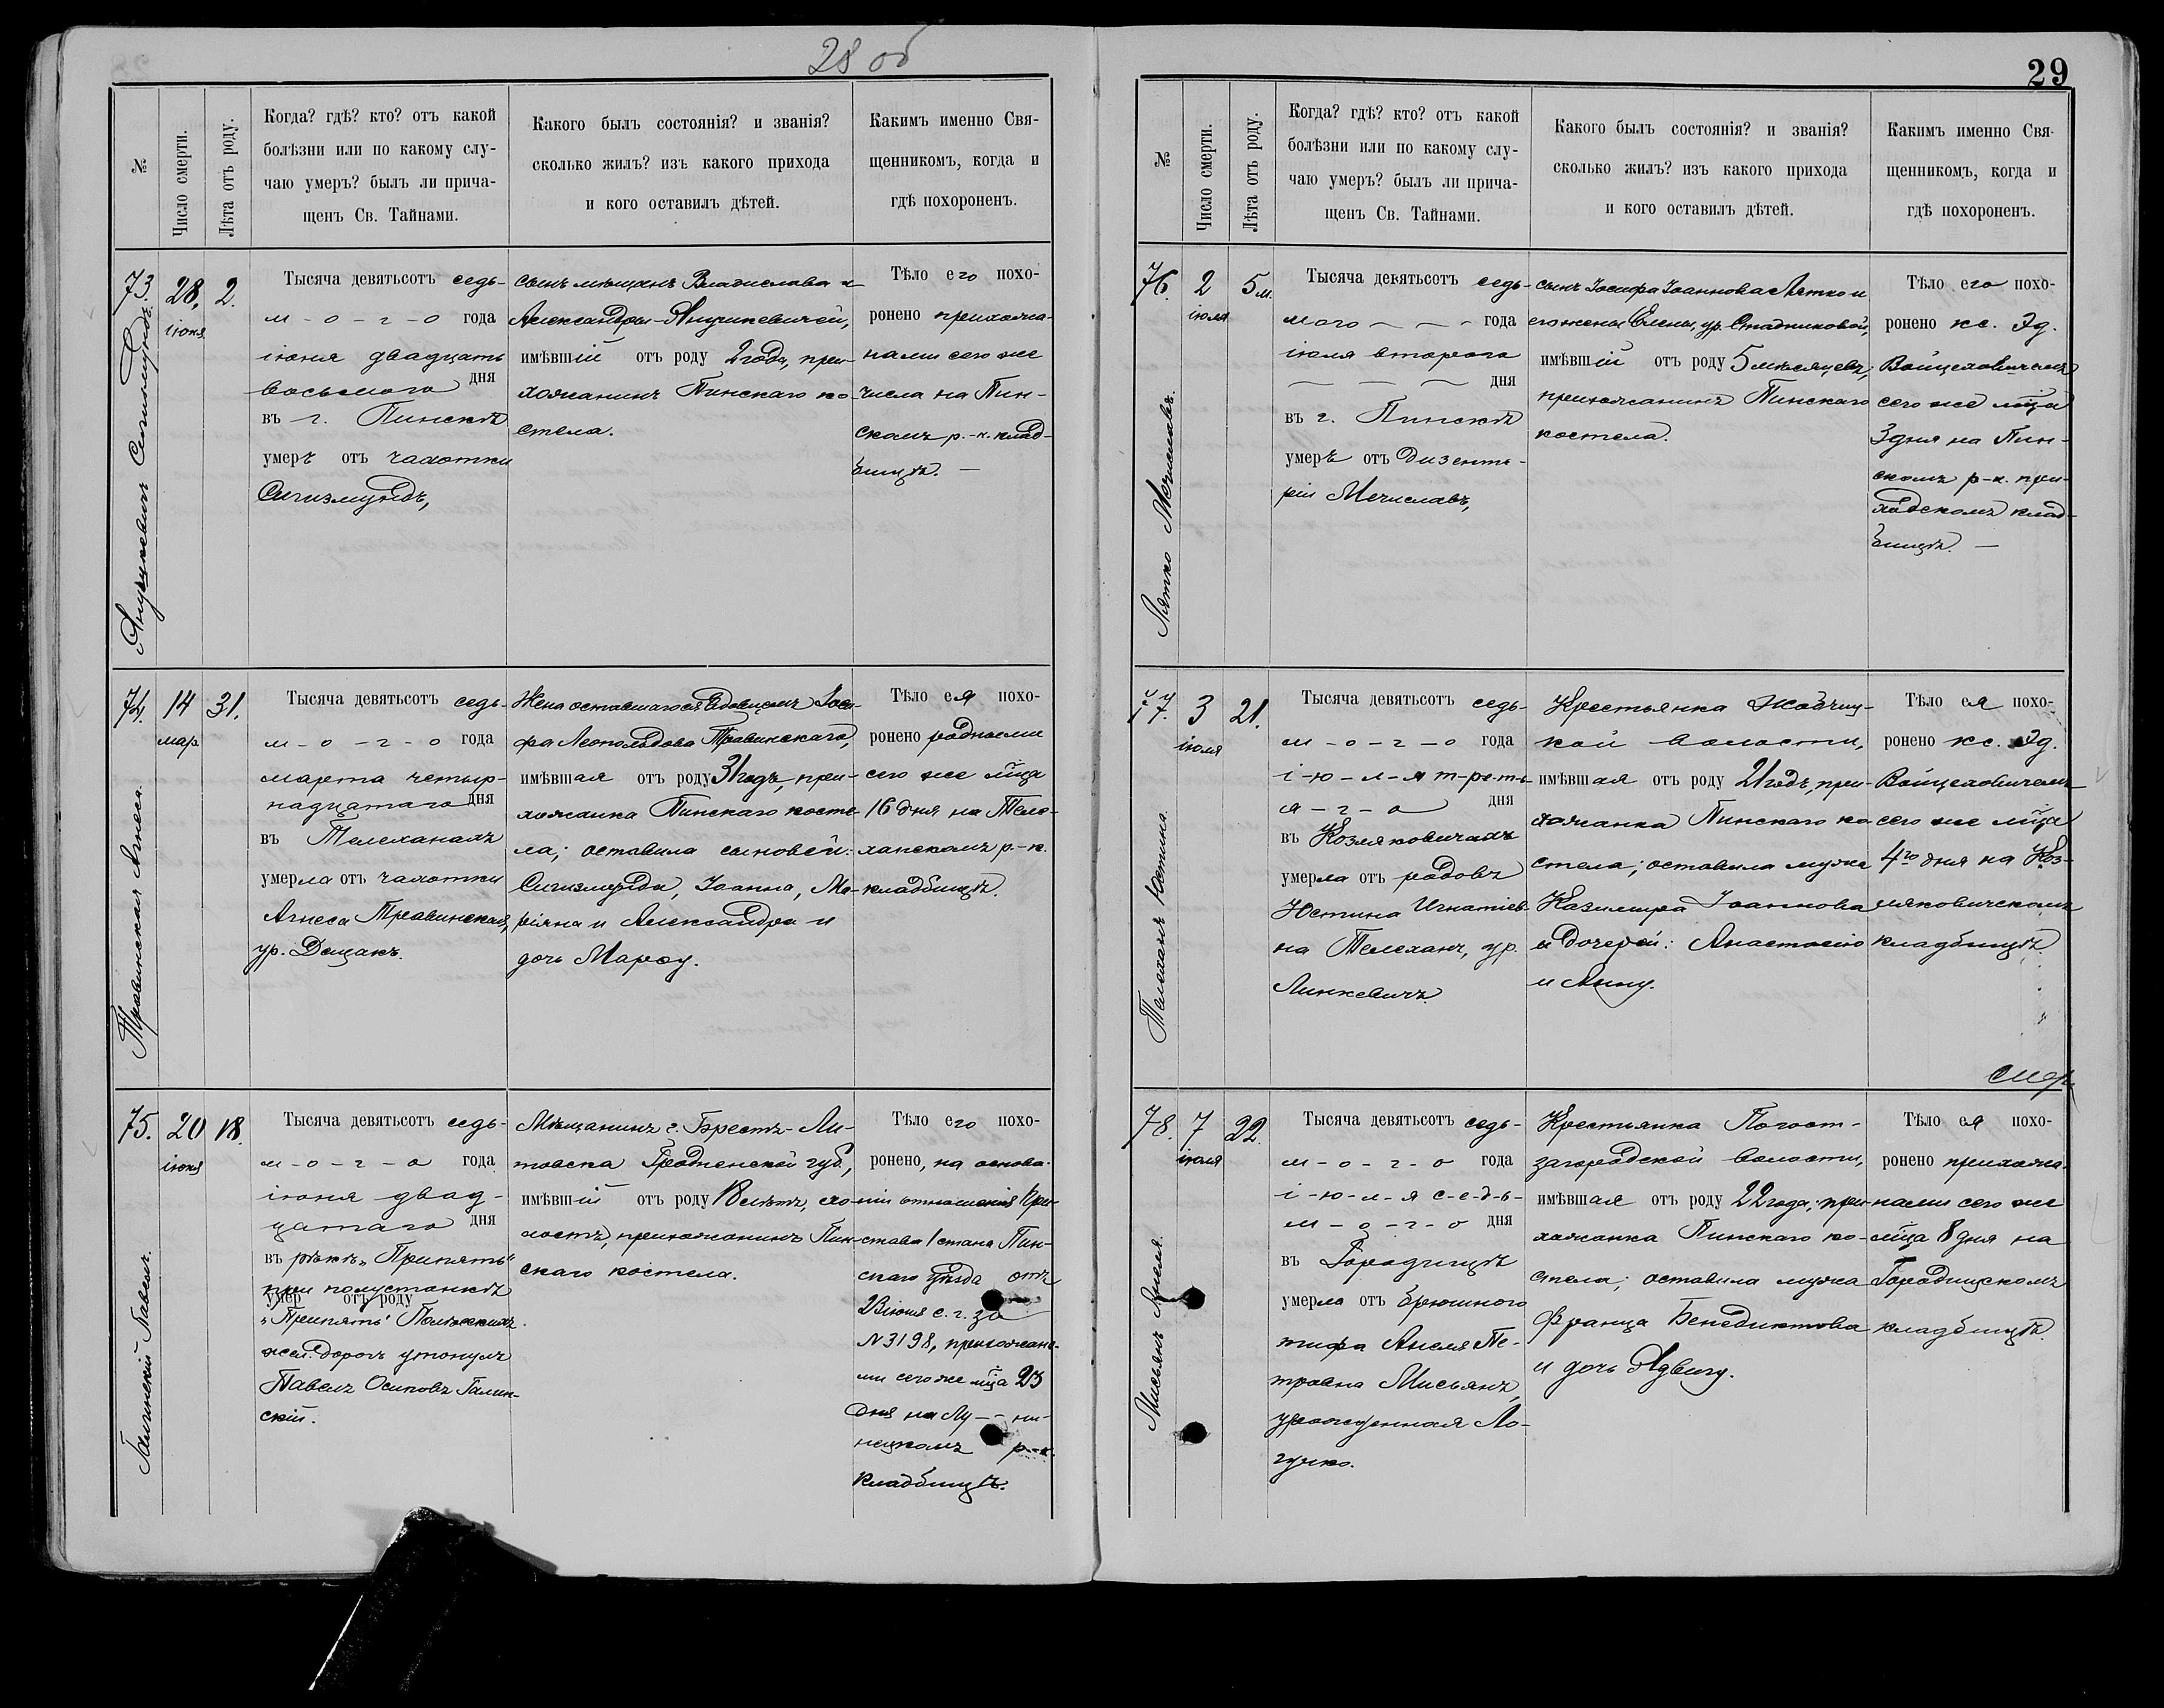 28 об
№
Число смерти.
Лѣта отъ роду.
Когда? гдѣ? кто? отъ какой
болѣзни или по какому слу-
чаю умеръ? былъ ли прича-
щенъ Св. Тайнами.
Какого былъ состоянія? и званія?
сколько жилъ? изъ какого прихода
и кого оставилъ дѣтей.
Какимъ именно Свя-
щенникомъ, когда и
гдѣ похороненъ.
73.
Янушкевичъ Сигизмундъ.
28,
іюня
2.
Тысяча девятьсотъ седь-
м-о-г-о года
іюня двадцать
восьмого дня
въ г. Пинскѣ
умеръ отъ чахотки
Сигизмундъ,
сынъ мѣщанъ Владислава и
Александры Янушкевичей,
имѣвшій отъ роду 2 года, при-
хожанинъ Пинскаго ко-
стела.
Тѣло его похо-
ронено прихожа-
нами сего же
числа на Пин-
скомъ р.-к. клад-
бищѣ. —
74.
Травинская Агнеса.
14
мар
31.
Тысяча девятьсотъ седь-
м-о-г-о года
марта четыр-
надцатаго дня
въ Телеханахъ
умерла отъ чахотки
Агнеса Травинская,
ур. Дещакъ.
Жена оставшагося вдовцомъ Іоси-
фа Леопольдова Травинскаго,
имѣвшая отъ роду 31 годъ, при-
хожанка Пинскаго косте-
ла; оставила сыновей:
Сигизмунда, Іоанна, Ма-
ріяна и Александра и
дочь Марсу.
Тѣло ея похо-
ронено родными
сего же м͠ца
16 дня на Теле-
ханскомъ р.-к.
кладбищѣ.
75.
Галинскій Павелъ.
20
іюня
18.
Тысяча девятьсотъ седь-
м-о-г-о года
іюня двад-
цатаго дня
въ рѣкѣ „Припять“
при полустанкѣ
умер отъ роду
„Припять“ Полѣсскихъ
жел. дорогъ утонулъ
Павелъ Осиповъ Галин-
скій.
Мѣщанинъ г. Брестъ-Ли-
товска Гродненской губ.,
имѣвшій отъ роду 18 лѣтъ, хо-
лостъ, прихожанинъ Пин-
скаго костела.
Тѣло его похо-
ронено, на основа-
ніи отношенія При-
става 1 стана Пин-
скаго уѣзда отъ
23 іюня с. г. за
№ 3198, прихожана-
ми сего же м͠ца 23
дня на Лу - - ни-
нецкомъ р.-к.
кладбищѣ.
29
№
Число смерти.
Лѣта отъ роду.
Когда? гдѣ? кто? отъ какой
болѣзни или по какому слу-
чаю умеръ? былъ ли прича-
щенъ Св. Тайнами.
Какого былъ состоянія? и званія?
сколько жилъ? изъ какого прихода
и кого оставилъ дѣтей.
Какимъ именно Свя-
щенникомъ, когда и
гдѣ похороненъ.
76.
Лятко Мечиславъ.
2
іюля
5 м.
Тысяча девятьсотъ седь-
мого — — - года
іюля второго
— — — дня
въ г. Пинскѣ
умеръ отъ дизенте-
ріи Мечиславъ,
сынъ Іосифа Іоаннова Лятко и
его жены Елены, ур. Стадниковой,
имѣвшій отъ роду 5 мѣсяцевъ,
прихожанинъ Пинскаго
костела.
Тѣло его похо-
ронено кс. Эд.
Войцеховичемъ
сего же м͠ца
3 дня на Пин-
скомъ р-к. при-
ходскомъ клад-
бищѣ. —
77.
Телеханъ Юстина.
3
іюля
21.
Тысяча девятьсотъ седь-
м-о-г-о года
і-ю-л-я т-ре-ть-
я-г-о дня
въ Козляковичахъ
умерла отъ родовъ
Юстина Игнатіев-
на Телеханъ, ур.
Линкевичъ.
Крестьянка Жабчиц-
кой волости,
имѣвшая отъ роду 21 годъ, при-
хожанка Пинскаго ко-
стела; оставила мужа
Казимира Іоаннова
и дочерей: Анастасію
и Анну.
Тѣло ея похо-
ронено кс. Эд.
Войцеховичемъ
сего же м͠ца
4го дня на Коз-
ляковичскомъ
кладбищѣ.
78.
Мисьянъ Анеля.
7
іюля
22.
Тысяча девятьсотъ седь-
м-о-г-о года
і-ю-л-я с-е-д-ь-
м-о-г-о дня
въ Городищѣ
умерла отъ брюшного
тифа Анеля Пе-
тровна Мисьянъ,
урожденная Ло-
гучко.
Крестьянка Погост-
загородской волости,
имѣвшая отъ роду 22 года, при-
хожанка Пинскаго ко-
стела; оставила мужа
Франца Бенедиктова
и дочь Ядвигу.
Тѣло ея похо-
ронено прихожа-
нами сего же
м͠ца 8 дня на
Городищскомъ
кладбищѣ.